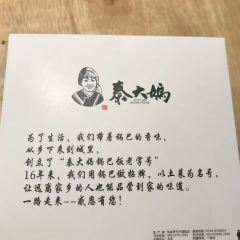 秦大妈
为了生活，我们带着锅巴的香味，
从乡下来到城里，
创立了“秦大妈锅巴饭老字号”
16年来，我们用锅巴做招牌，以土菜为名号，
让远离家乡的人也能尝到家的味道。
一路走来--感恩有您！